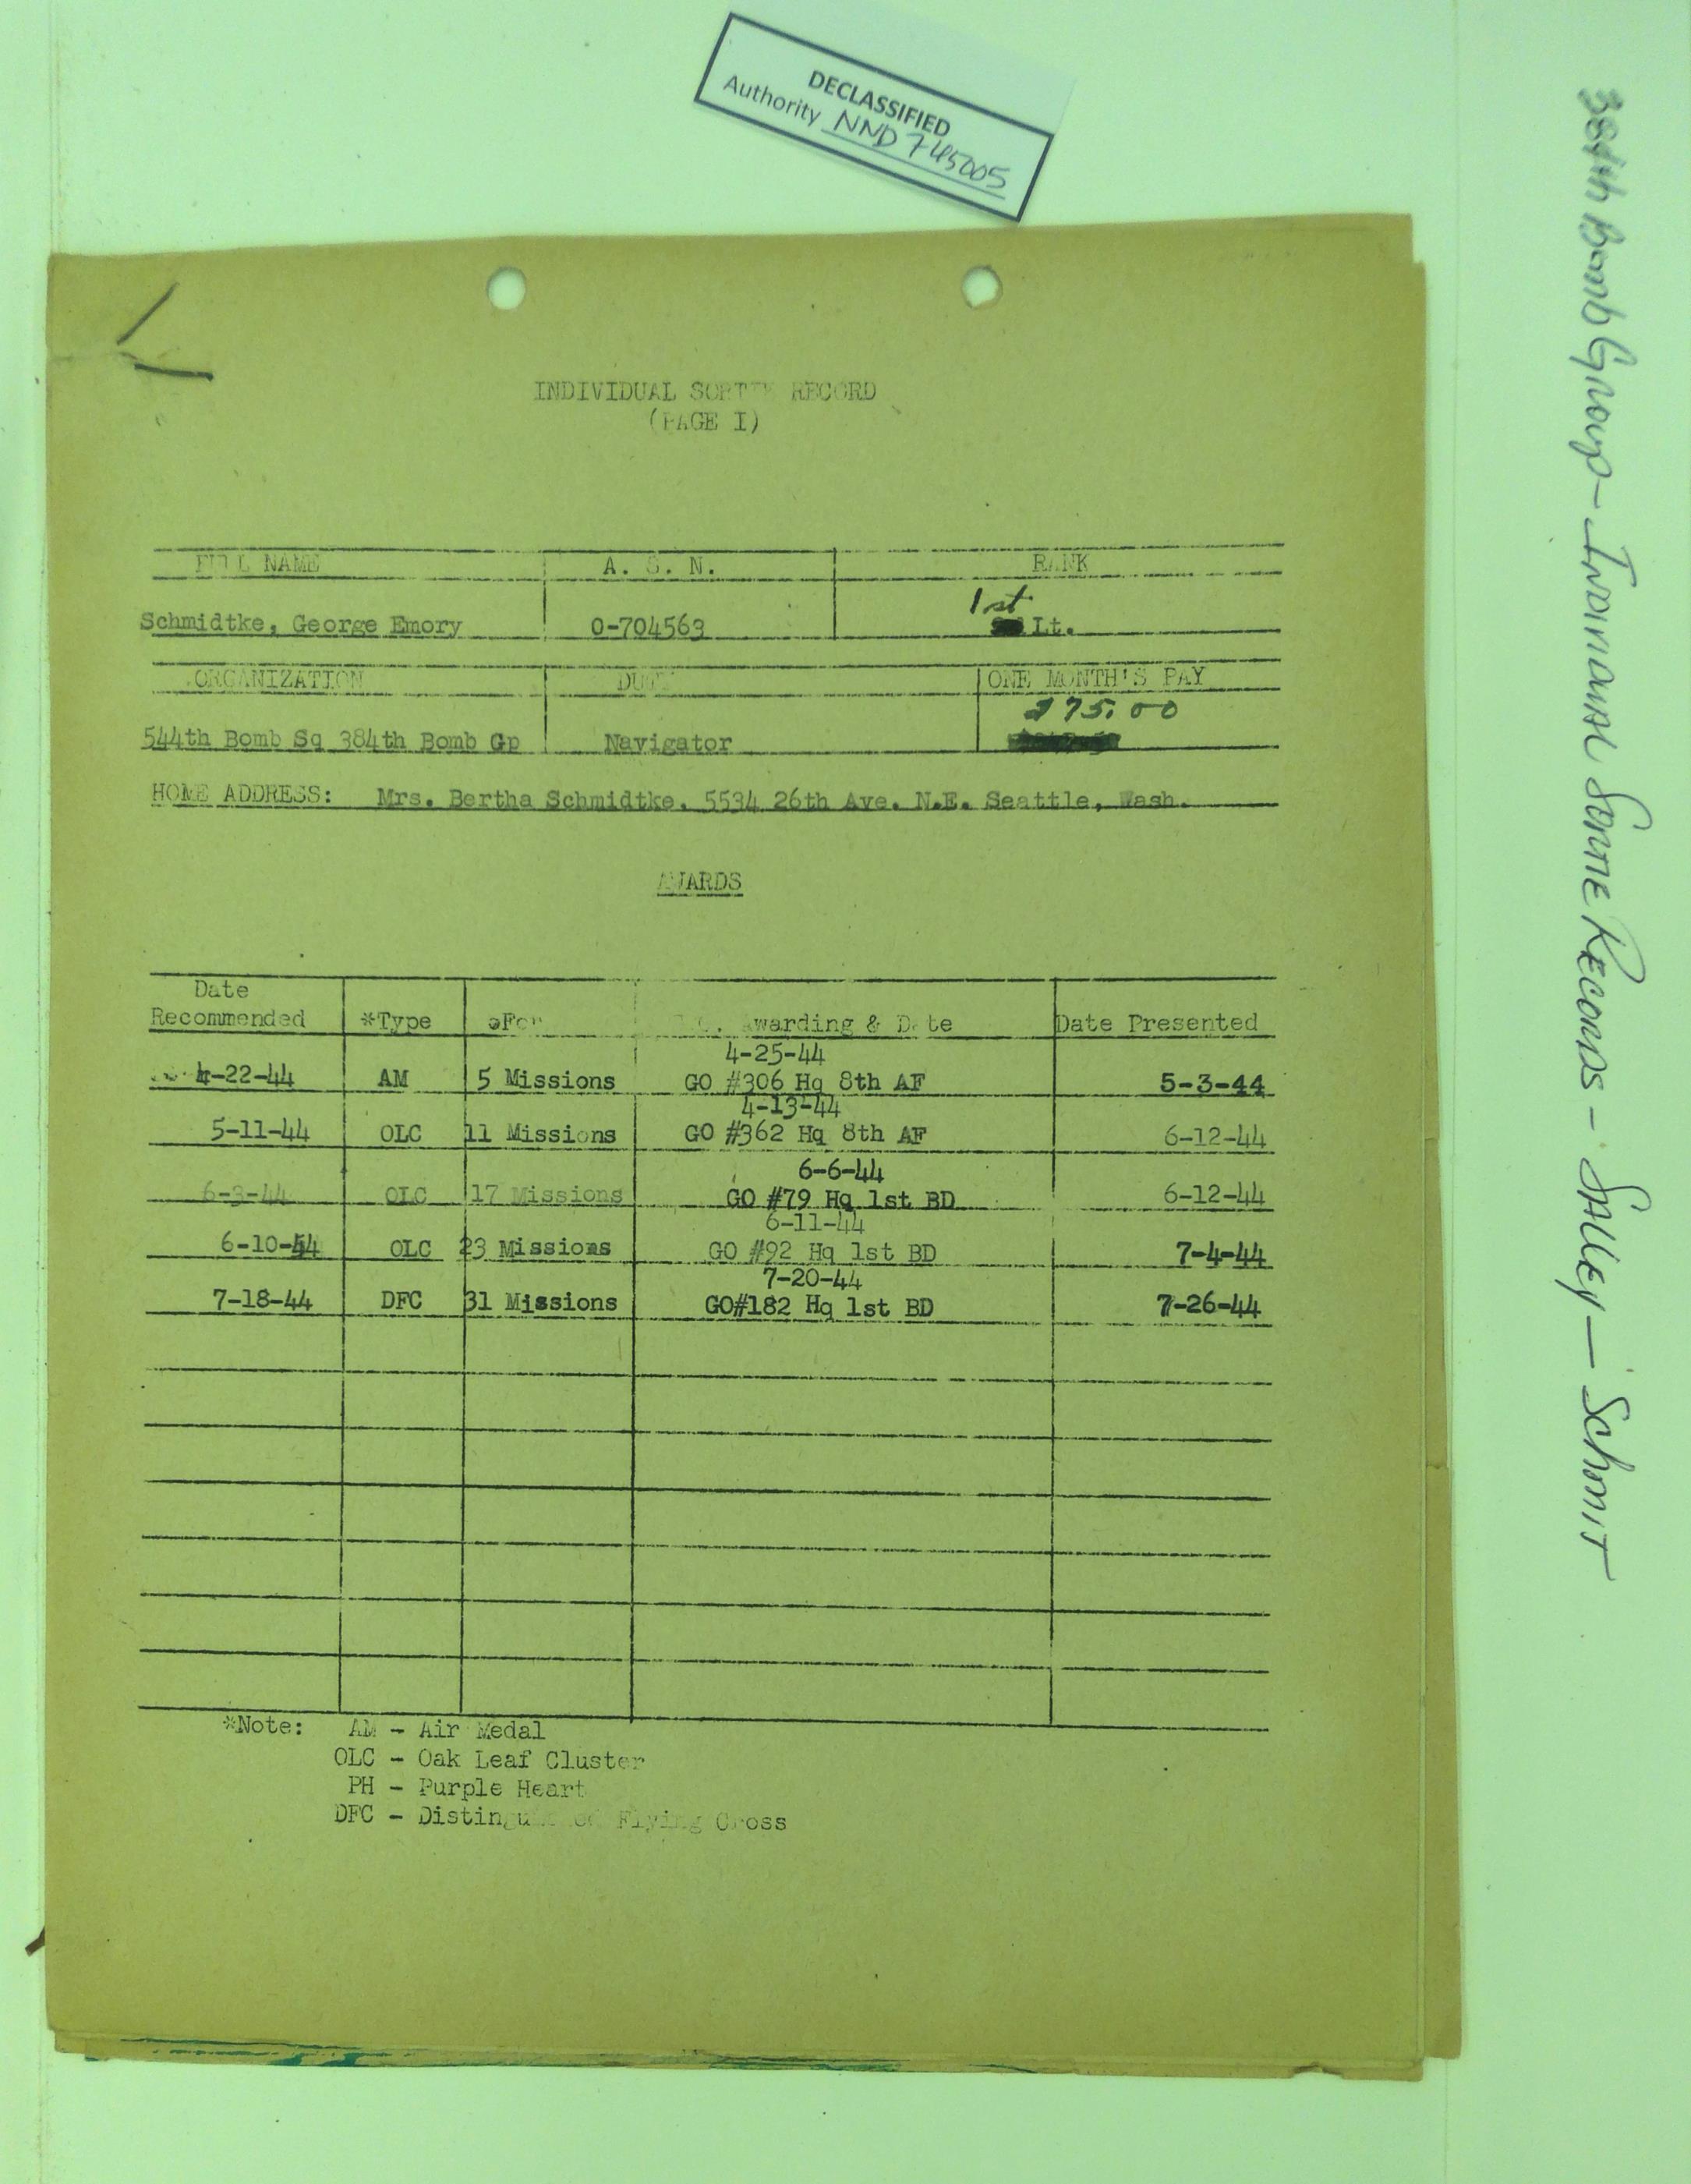 DECLASSIFIED
Authority NND 745005
384th Bomb Group - Individual Sortie Records - Salley - Schmit
INDIVIDUAL SORTIE RECORD
(PAGE I)
FULL NAME A. S. N. RANK
1st
Schmidtke, George Emory 0-704563 Lt.
ORGANIZATION DUTY ONE MONTH'S PAY
275.00
544th Bomb Sq 384th Bomb Gp Navigator
HOME ADDRESS: Mrs. Bertha Schmidtke, 5534 26th Ave. N.E. Seattle, Wash.
AWARDS
Date
Recommended *Type For Awarding & Date Date Presented
4-25-44
4-22-44 AM 5 Missions GO #306 Hq 8th AF 5-3-44
4-13-44
5-11-44 OLC 11 Missions GO #362 Hq 8th AF 6-12-44
6-6-44
6-3-44 OLC 17 Missions GO #79 Hq 1st BD 6-12-44
6-11-44
6-10-44 OLC 23 Missions GO #92 Hq 1st BD 7-4-44
7-20-44
7-18-44 DFC 31 Missions GO#182 Hq 1st BD 7-26-44
*Note: AM - Air Medal
OLC - Oak Leaf Cluster
PH - Purple Heart
DFC - Distinguished Flying Cross